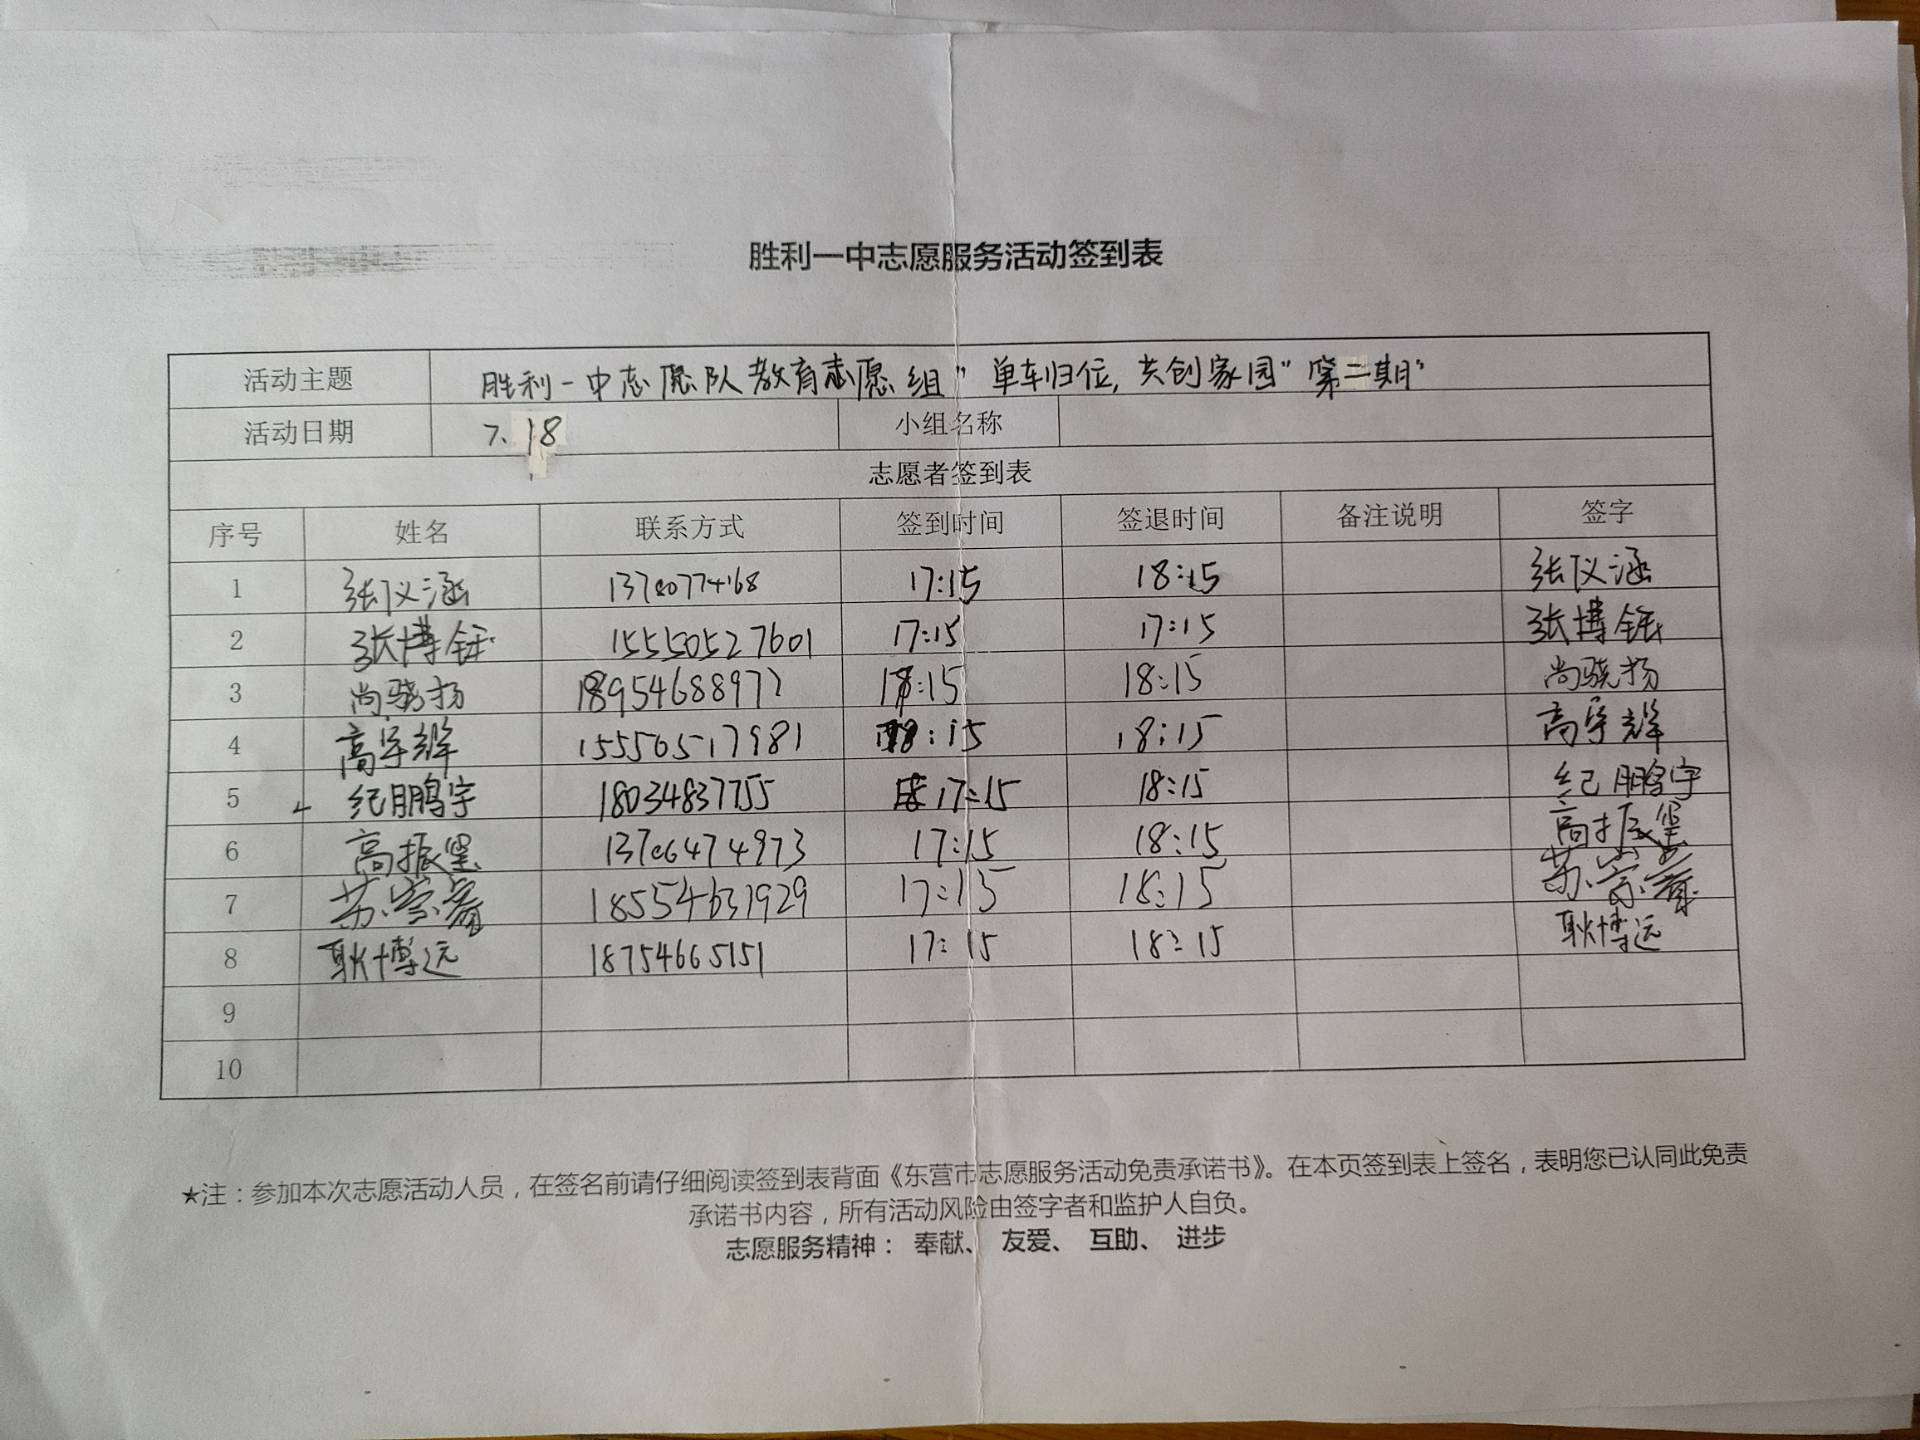 胜利一中志愿服务活动签到表
活动主题 胜利一中志愿队教育志愿组"单车归位,共创家园"第二期"
活动日期 7.18 小组名称
志愿者签到表
序号 姓名 联系方式 签到时间 签退时间 备注说明 签字
1 张仪涵 17:15 18:15 张仪涵
2 张博钰 15550527601 17:15 17:15 张博钰
3 尚骁扬 18954688972 :15 18:15 尚骁扬
4 高宇辉 15550517981 :15 18:15 高宇辉
5 纪鹏宇 18034837755 17:15 18:15 纪鹏宇
6 高振 13706474973 17:15 18:15 高振
7 苏崇 18554631929 17:15 18:15 苏崇
8 耿博远 18754665151 17:15 18:15 耿博远
9
10
★注:参加本次志愿活动人员,在签名前请仔细阅读签到表背面《东营市志愿服务活动免责承诺书》。在本页签到表上签名,表明您已认同此免责
承诺书内容,所有活动风险由签字者和监护人自负。
志愿服务精神: 奉献、 友爱、 互助、 进步